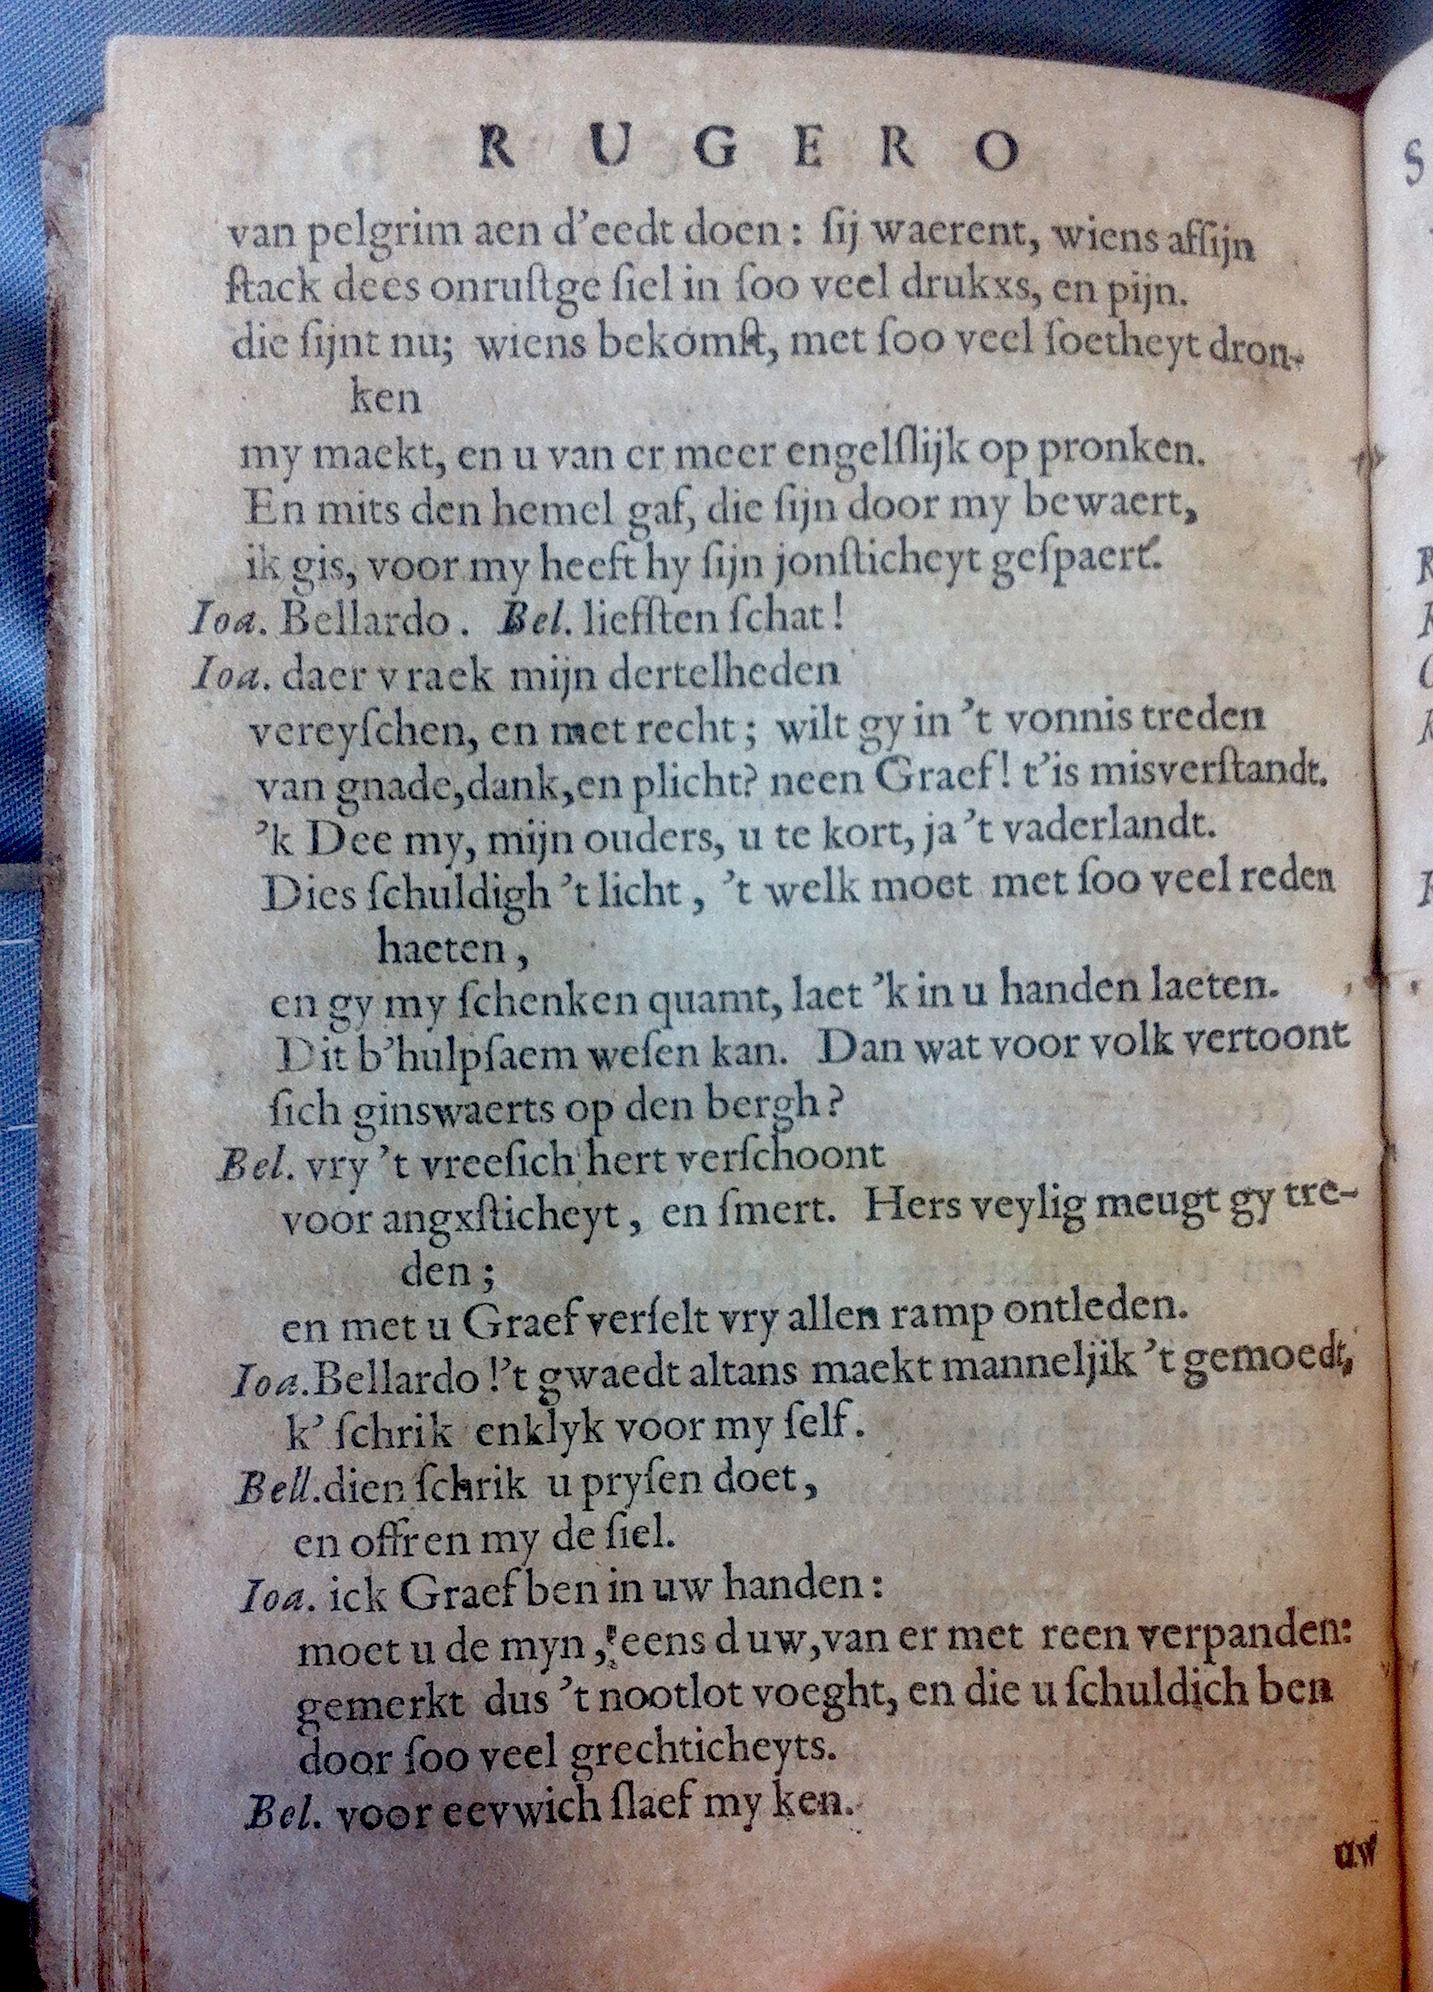 RUGERO
van pelgrim aen d'eedt doen: ſij waerent, wiens afſijn
ſtack dees onruſtge ſiel in ſoo veel drukxs, en pijn.
die ſijnt nu; wiens bekomſt, met ſoo veel ſoetheyt dron-
ken
my maekt, en u van er meer engelſlijk op pronken.
En mits den hemel gaf, die ſijn door my bewaert,
ik gis, voor my heeft hy ſijn jonſticheyt geſpaert.
Ioa. Bellardo. Bel. liefſten ſchat!
Ioa. daer vraek mijn dertelheden
vereyſchen, en met recht; wilt gy in 't vonnis treden
van gnade, dank, en plicht? neen Graef! t'is misverſtandt.
'k Dee my, mijn ouders, u te kort, ja 't vaderlandt.
Dies ſchuldigh 't licht, 't welk moet met ſoo veel reden
haeten,
en gy my ſchenken quamt, laet 'k in u handen laeten.
Dit b'hulpſaem weſen kan. Dan wat voor volk vertoont
ſich ginswaerts op den bergh?
Bel. vry 't vreeſich hert verſchoont
voor angxſticheyt, en ſmert. Hers veylig meugt gy tre-
den;
en met u Graef verſelt vry allen ramp ontleden.
Ioa. Bellardo! 't gwaedt altans maekt manneljik 't gemoedt,
k' ſchrik enklyk voor my ſelf.
Bell. dien ſchrik u pryſen doet,
en offren my de ſiel.
Ioa. ick Graef ben in uw handen:
moet u de myn, 'eens d uw, van er met reen verpanden:
gemerkt dus 't nootlot voeght, en die u ſchuldich ben
door ſoo veel grechticheyts.
Bel. voor eevwich ſlaef my ken.
uw